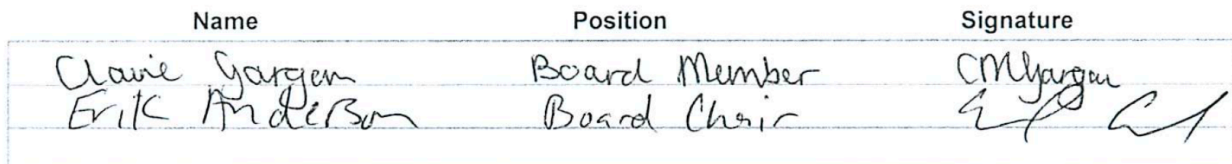 Name Position Signature
Claire Gargan Board Member CMGargan
Erik Anderson Board Chair